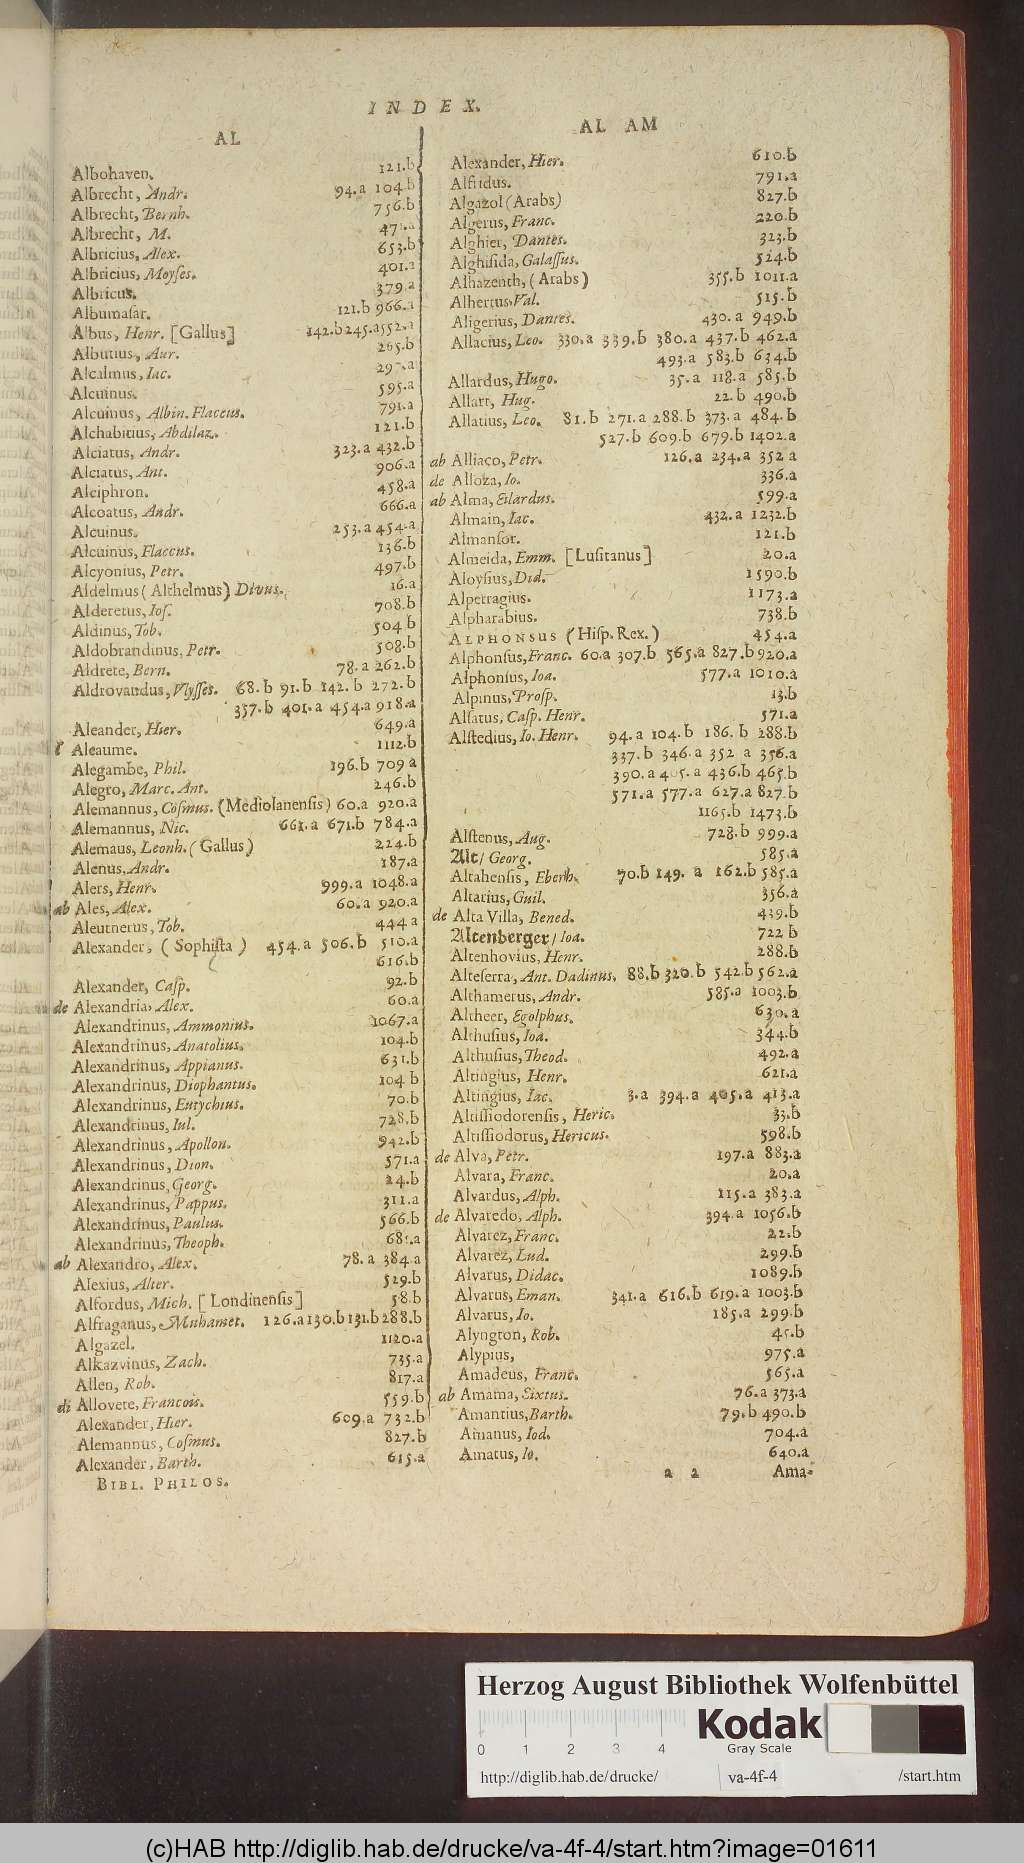 INDEX.
AL
Albohaven. 121.b
Albrecht, Andr. 94.a 104.b
Albrecht, Bernh. 756.b
Albrecht, M.
Albricius, Alex. 653.b
Albricius, Moyses. 401.a
Albricus. 379.a
Albumasar. 121.b 966.a
Albus, Henr. [Gallus] 142.b 245.a 552.a
Albutius, Aur. 265.b
Alcalmus, Iac.
Alcuinus. 595.a
Alcuinus, Albin. Flaccus. 791.a
Alchabitius, Abdilaz. 121.b
Alciatus, Andr. 323.a 432.b
Alciatus, Ant. 906.a
Alciphron. 458.a
Alcoatus, Andr. 666.a
Alcuinus. 253.a 454.a
Alcuinus, Flaccus. 136.b
Alcyonius, Petr. 497.b
Aldelmus (Althelmus) Divus. 16.a
Alderetus, Ios. 708.b
Aldinus, Tob. 504 b
Aldobrandinus, Petr. 508.b
Aldrete, Bern. 78.a 262.b
Aldrovandus, Vlysses. 68.b 91.b 142.b 272.b
337.b 401.a 454.a 918.a
Aleander, Hier. 649.a
Aleaume. 1112.b
Alegambe, Phil. 196.b 709 a
Alegro, Marc. Ant. 246.b
Alemannus, Cosmus. (Mediolanensis) 60.a 920.a
Alemannus, Nic. 661.a 671.b 784.a
Alemaus, Leonh. (Gallus) 224.b
Alenus, Andr. 187.a
Alers, Henr. 999.a 1048.a
ab Ales, Alex. 60.a 920.a
Aleutnerus, Tob. 444 a
Alexander, (Sophista) 454.a 506.b 510.a
616.b
Alexander, Casp. 92.b
de Alexandria, Alex. 60.a
Alexandrinus, Ammonius. 1067.a
Alexandrinus, Anatolius. 104.b
Alexandrinus, Appianus. 631.b
Alexandrinus, Diophantus. 104 b
Alexandrinus, Eutychius. 70.b
Alexandrinus, Iul. 728.b
Alexandrinus, Apollon. 942.b
Alexandrinus, Dion. 571.a
Alexandrinus, Georg. 24.b
Alexandrinus, Pappus. 311.a
Alexandrinus, Paulus. 566.b
Alexandrinus, Theoph.
ab Alexandro, Alex. 78.a 384.a
Alexius, Alter. 529.b
Alfordus, Mich. [Londinensis] 58.b
Alfraganus, Muhamet. 126.a 130.b 131.b 288.b
Algazel. 1120.a
Alkazvinus, Zach. 735.a
Allen, Rob. 817.a
di Allovete, Francois. 559.b
Alexander, Hier. 609.a 732.b
Alemannus, Cosmus. 827.b
Alexander, Barth. 615.a
BIBL. PHILOS.
AL AM
Alexander, Hier. 610.b
Alfitdus. 791.a
Algazol (Arabs) 827.b
Algerus, Franc. 220.b
Alghier, Dantes. 323.b
Alghisida, Galassus. 524.b
Alhazenth, (Arabs) 355.b 1011.a
Alhertus, Val. 515.b
Aligerius, Dantes. 430.a 949.b
Allacius, Leo. 330.a 339.b 380.a 437.b 462.a
493.a 583.b 634.b
Allardus, Hugo. 35.a 118.a 585.b
Allart, Hug. 22.b 490.b
Allatius, Leo. 81.b 271.a 288.b 373.a 484.b
527.b 609.b 679.b 1402.a
ab Alliaco, Petr. 126.a 234.a 352 a
de Alloza, Io. 336.a
ab Alma, Eilardus. 599.a
Almain, Iac. 432.a 1232.b
Almansor. 121.b
Almeida, Emm. [Lusitanus] 20.a
Aloysius, Did. 1590.b
Alpetragius. 1173.a
Alpharabius. 738.b
ALPHONSUS (Hisp. Rex.) 454.a
Alphonsus, Franc. 60.a 307.b 565.a 827.b 920.a
Alphonsus, Ioa. 577.a 1010.a
Alpinus, Prosp. 13.b
Alsatus, Casp. Henr. 571.a
Alstedius, Io. Henr. 94.a 104.b 186.b 288.b
337.b 346.a 352 a 356.a
390.a 405.a 436.b 465.b
571.a 577.a 627.a 827.b
1165.b 1473.b
Alstenus, Aug. 728.b 999.a
Alt/ Georg. 585.a
Altahensis, Eberh. 70.b 149. a 162.b 585.a
Altarius, Guil. 356.a
de Alta Villa, Bened. 439.b
Altenberger/ Ioa. 722 b
Altenhovius, Henr. 288.b
Alteserra, Ant. Dadinus. 88.b 320.b 542.b 562.a
Althamerus, Andr. 585.a 1003.b
Altheer, Egolphus. 630.a
Althusius, Ioa. 344.b
Althusius, Theod. 492.a
Altingius, Henr. 621.a
Altingius, Iac. 3.a 394.a 405.a 413.a
Altissiodorensis, Heric. 33.b
Altissiodorus, Hericus. 598.b
de Alva, Petr. 197.a 883.a
Alvara, Franc. 20.a
Alvardus, Alph. 115.a 383.a
de Alvaredo, Alph. 394.a 1056.b
Alvarez, Franc. 22.b
Alvarez, Lud. 299.b
Alvarus, Didac. 1089.b
Alvarus, Eman. 341.a 616.b 619.a 1003.b
Alvarus, Io. 185.a 299.b
Alyngton, Rob.
Alypius, 975.a
Amadeus, Franc. 565.a
ab Amama, Sixtus. 76.a 373.a
Amantius, Barth. 79.b 490.b
Amanus, Iod. 704.a
Amatus, Io. 640.a
a 2 Ama-
Herzog August Bibliothek Wolfenbüttel
Kodak
Gray Scale
0 1 2 3 4
http://diglib.hab.de/drucke/ va-4f-4 /start.htm
(c)HAB http://diglib.hab.de/drucke/va-4f-4/start.htm?image=01611